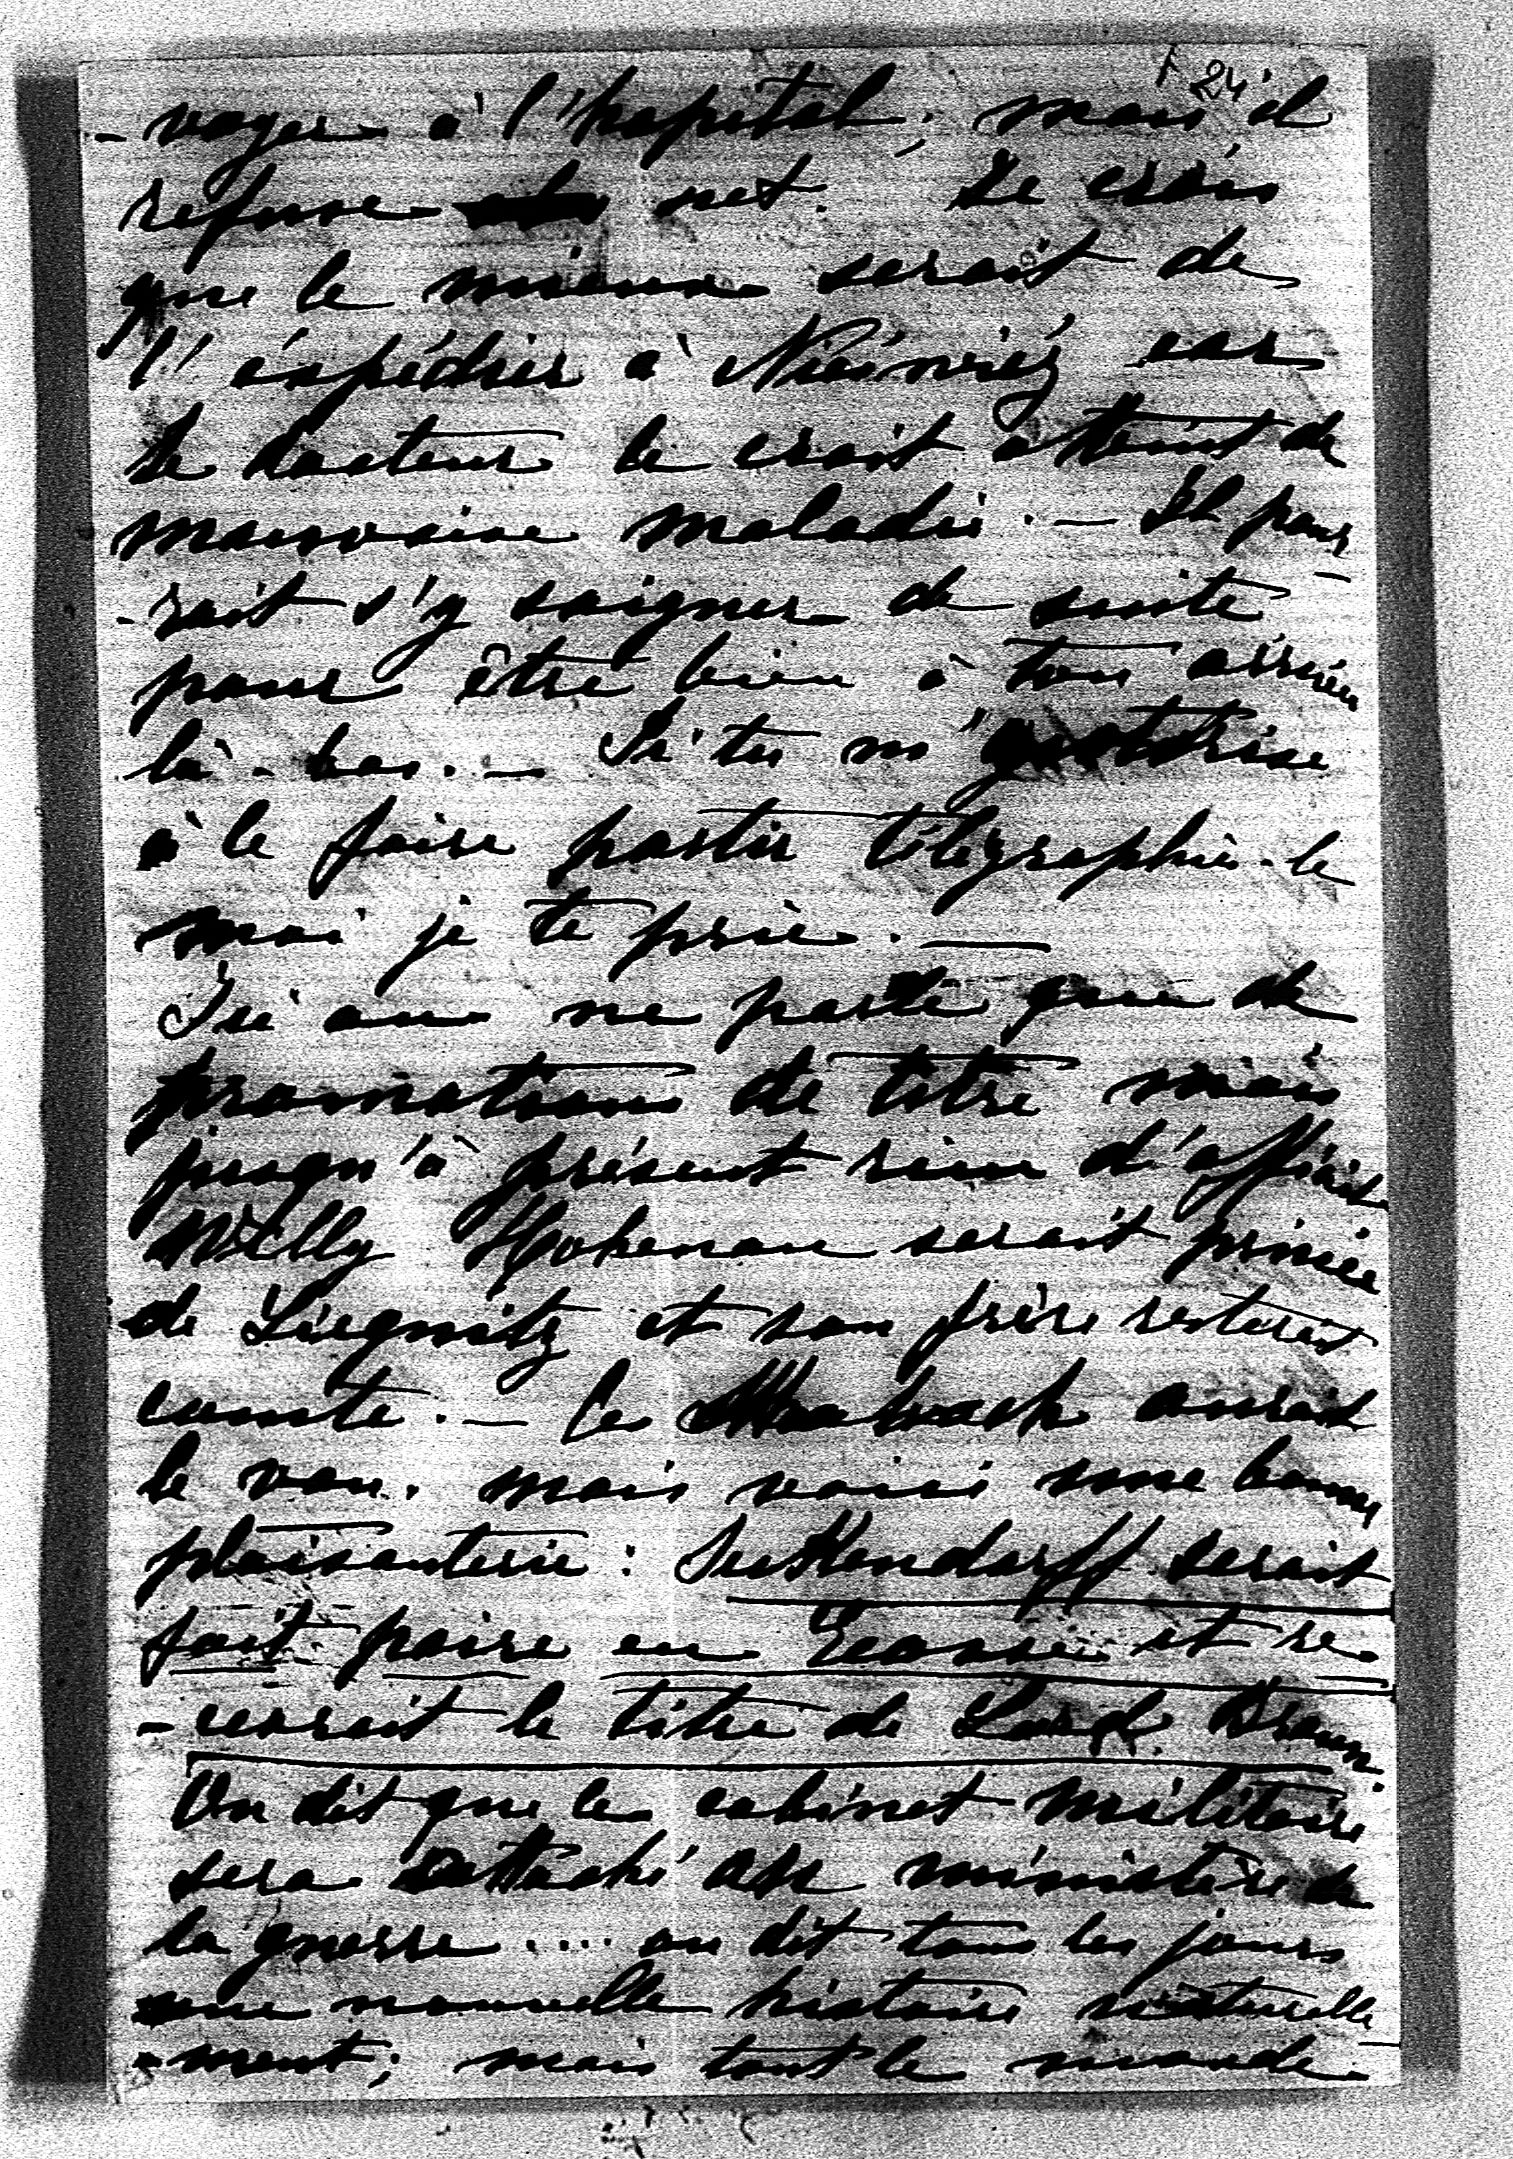 F 24
- voyer à l'hopital; mais il
refuse net. Je crois
que le mieux serait de
l'éxpédier à Niéswiéz car
le docteur le croit atteint de
mauvaise maladie. — Il pour
- rait s'y soigner de suite
pour être bien à ton arrivée
là-bas. — Si tu m'autorise
à le faire partir télégraphie-le
moi je te prie. —
Ici on ne parle que de
promotions de titre mais
jusqu'à présent rien d'officiel
Willy Hohenau serait prince
de Liegnitz et son frère resterait
comte. — Ce aurait
le von. mais voici une bonne
plaisanterie: Suckendorff serait
fait paire en Ecosse et re
- cevrait le titre de Lord Brown.
On dit que le cabinet militaire
sera attaché au ministère de
la guerre .... on dit tous les jours
une nouvelle histoire naturelle
- ment; mais tout le monde